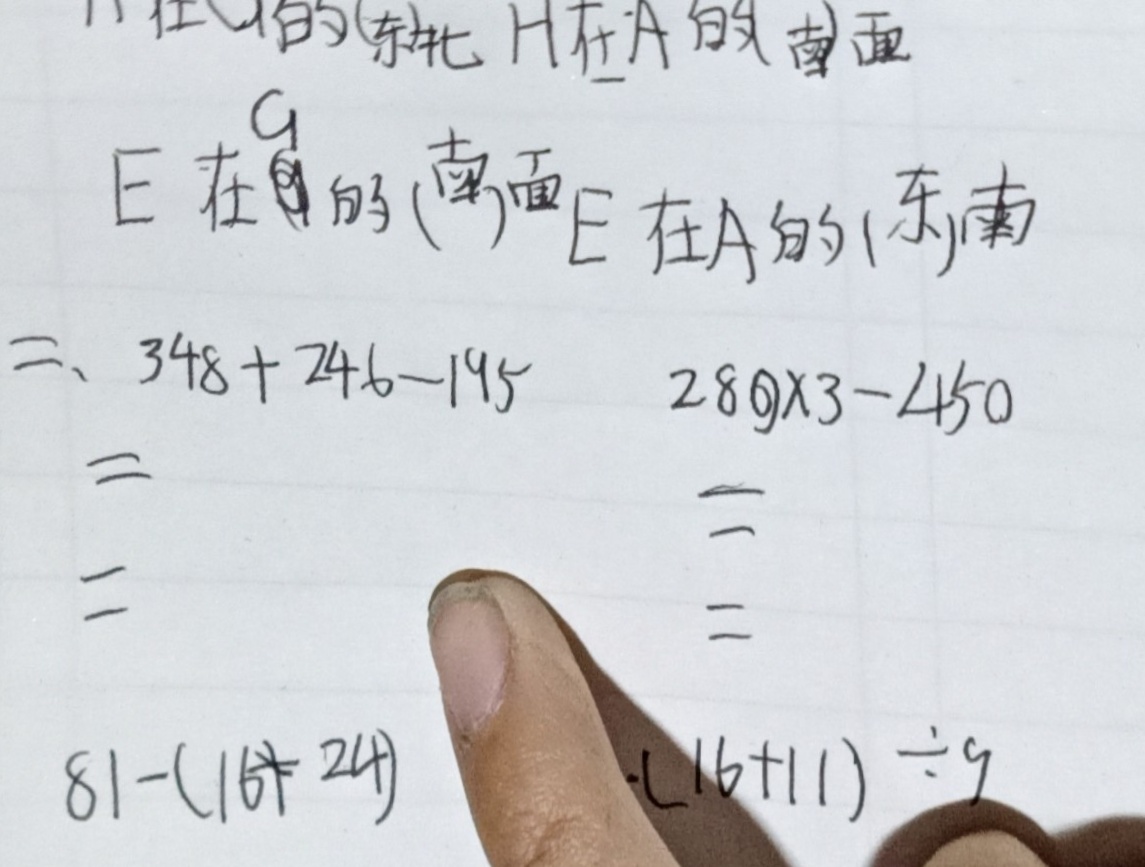 在G的(东)北 H在A的南面
E在G的(南)面 E在A的(东)南
二、348+246-195 280×3-450
= =
= =
81-(16+24) (16+11)÷9